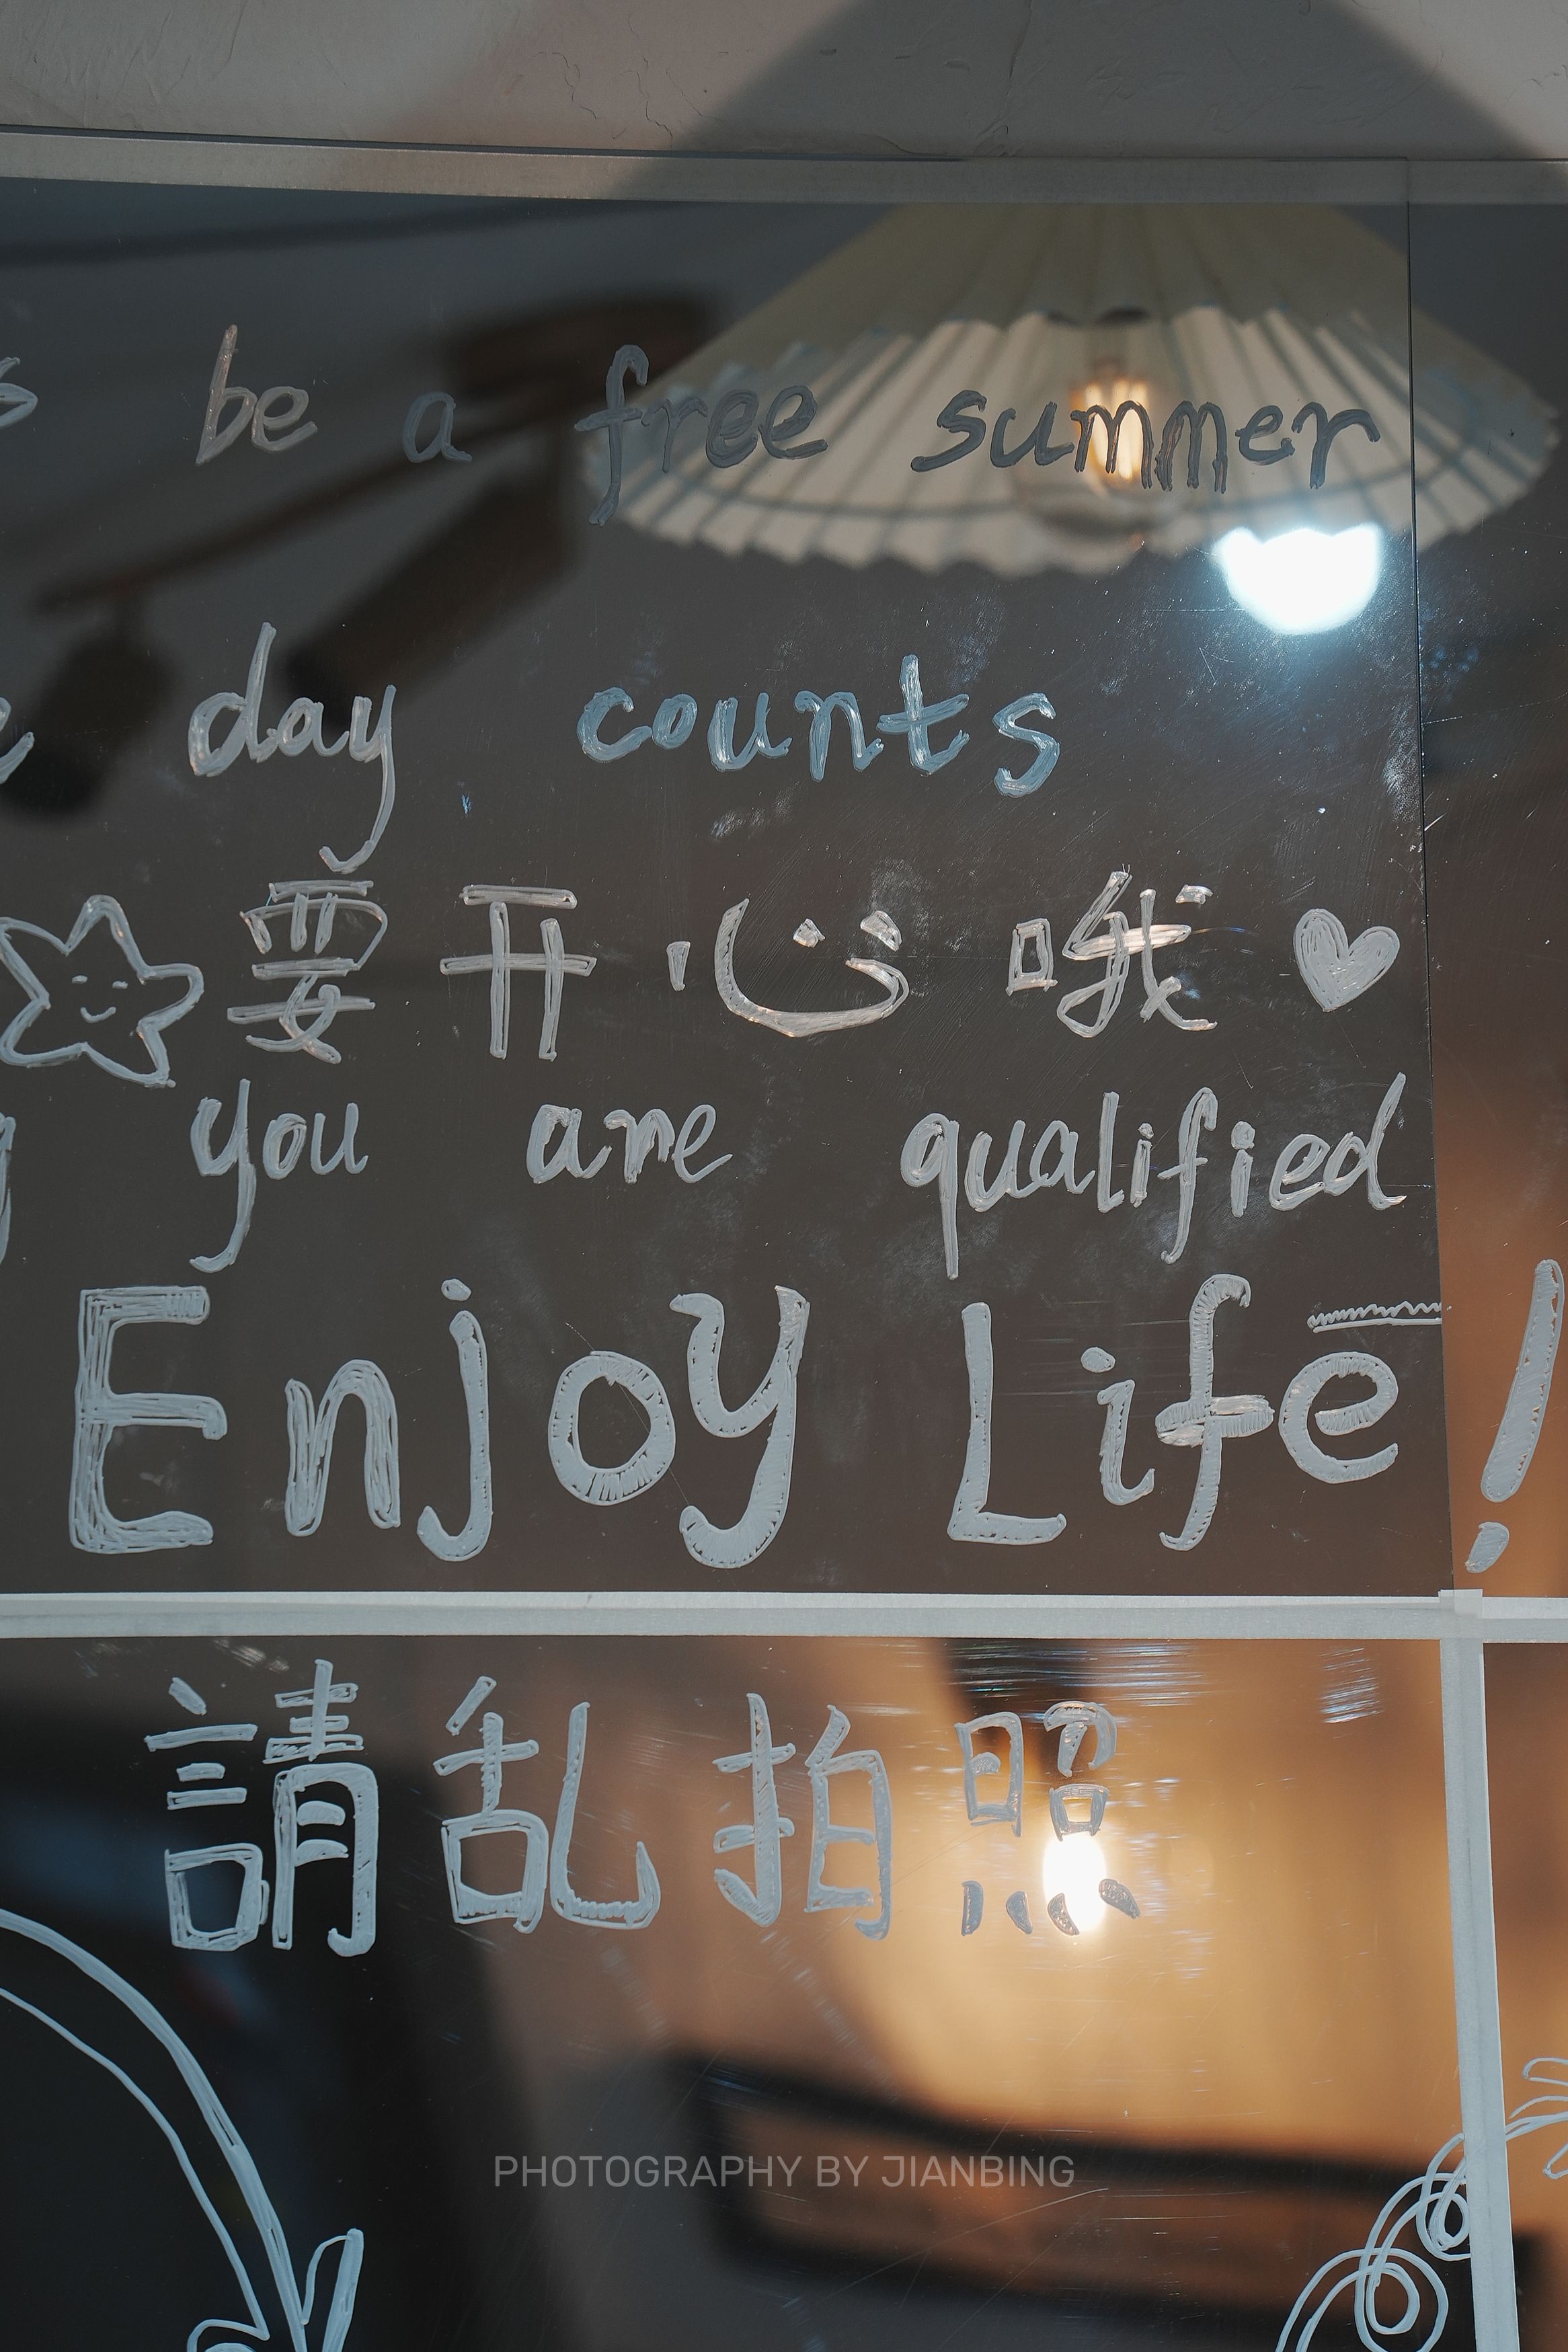 be a free summer
day counts
要开心哦
you are qualified
Enjoy Life!
請乱拍照
PHOTOGRAPHY BY JIANBING